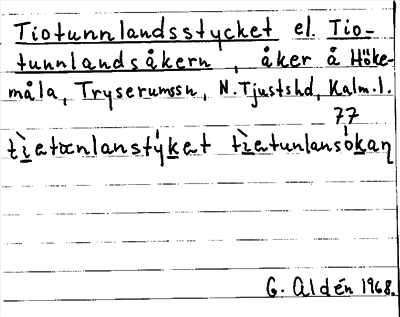 Tiotunnlandsstycket el. Tio-
tunnlandsåkern, åker å Höke-
måla, Tryserumssn, N. Tjustshd, Kalm. l.
77
tìetænlanstýket tìetunlansòkaṇ
G. Aldén 1968.